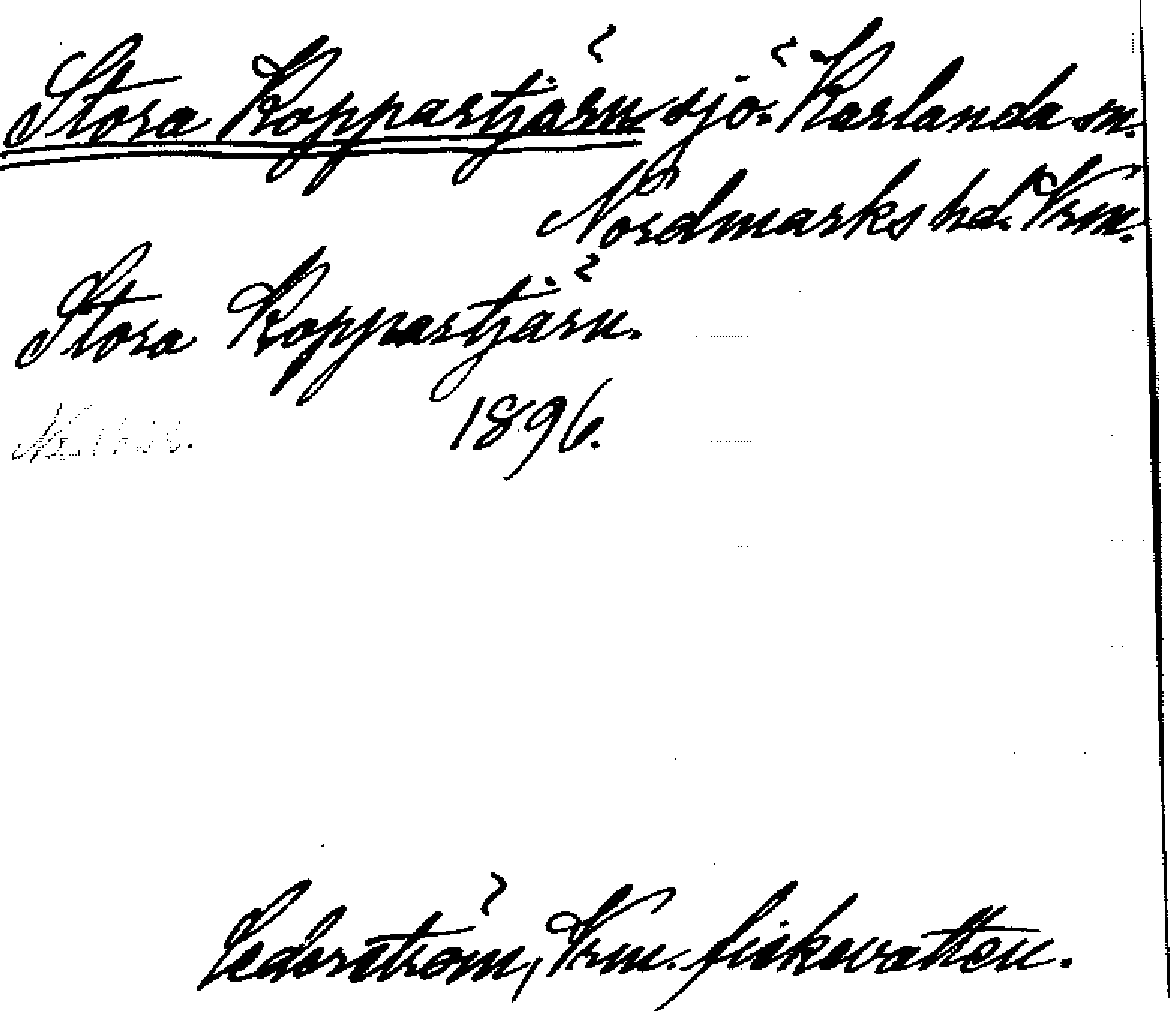 Stora Kopparstjärn sjö. Karlanda sn.
Nordmarks hd. Vrm.
Stora Kopparstjärn.
1896.
Cederström, Vrm. fiskevatten.